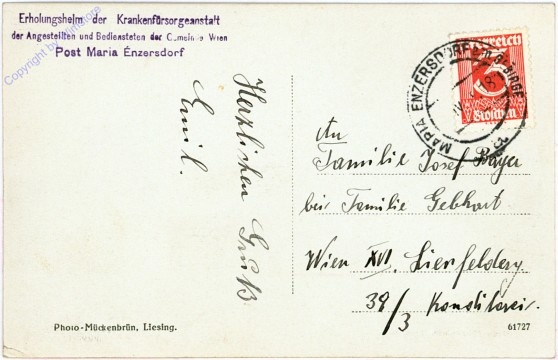 Erholungsheim der Krankenfürsorgeanstalt
der Angestellten und Bediensteten der Gemeinde Wien
Post Maria Enzersdorf
Copyright by
Herzlichen Gruß
Emil.
MARIA ENZERSDORF A. GEBIRGE
Österreich
5
Groschen
An
Familie Josef Bayer
bei Familie Gebhart
Wien XVI.
39/3 Konditorei.
Photo-Mückenbrün, Liesing.
61727